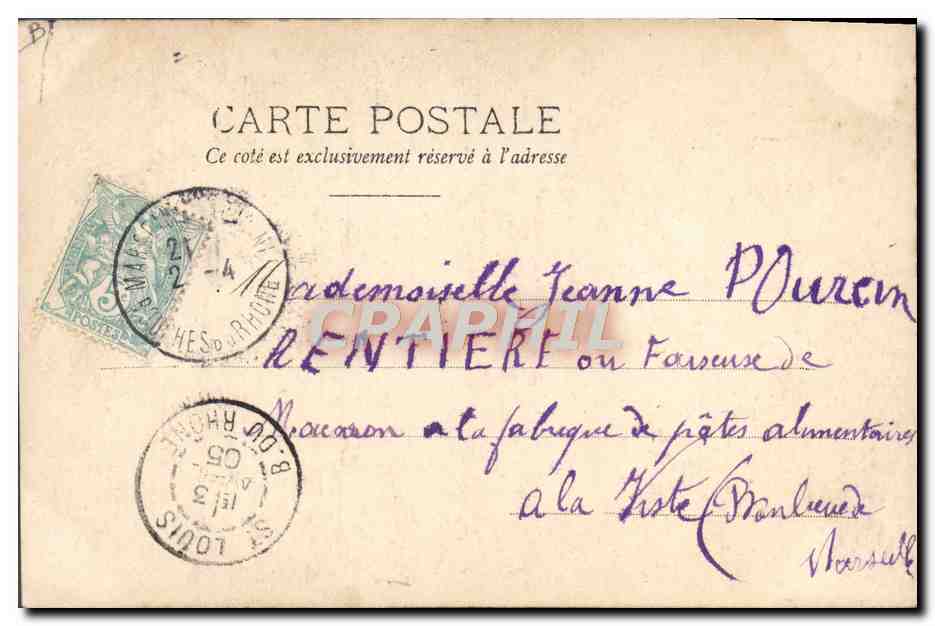 B
CARTE POSTALE
Ce coté est exclusivement réservé à l'adresse
21
2 -4
BOUCHES DU RHONE
POSTES
Mademoiselle Jeanne POurcin
CPARAPHIL
RENTIERE ou Faiseuse de
Macaron a la fabrique de pâtes alimentaires
a la Viste (Banlieue de
Marseille
ST LOUIS
B. DU RHONE
15 3
05